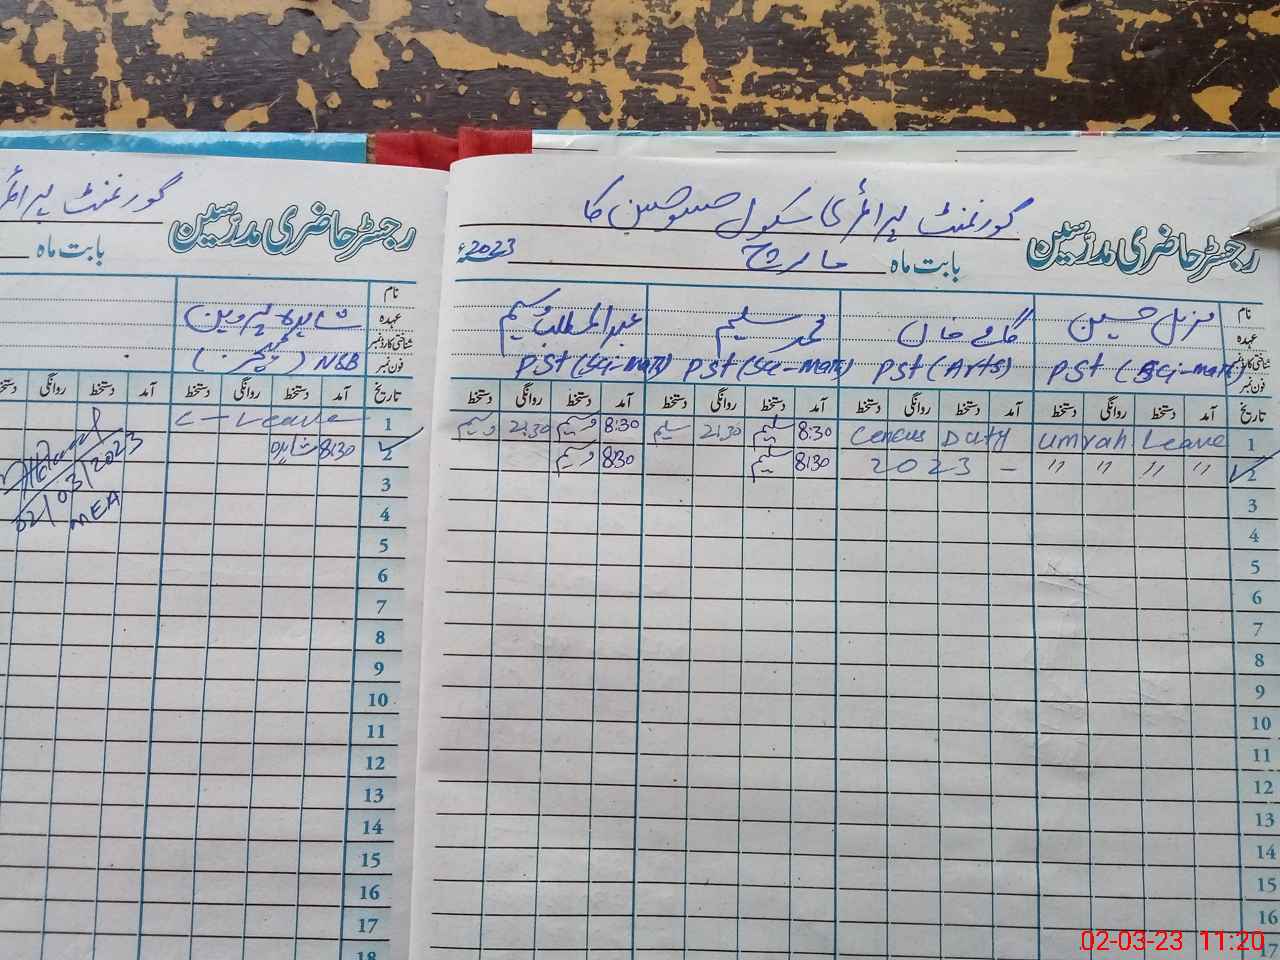 رجسٹر حاضری مدرسین گورنمنٹ پرائمری سکول حسو حسین کا
بابت ماہ مارچ 2023ء
نام مزمل حسین گامے خان محمد سلیم عبدالمطلب وسیم
عہدہ
شناختی کارڈ نمبر PST (Sci-math) PST (Arts) PST (Sci-math) PST (Sci-math)
فون نمبر
تاریخ آمد دستخط روانگی دستخط آمد دستخط روانگی دستخط آمد دستخط روانگی دستخط آمد دستخط روانگی دستخط
1 Umrah Leave Census Duty 8:30 سلیم 2:30 سلیم 8:30 وسیم 2:30 وسیم
2 " " " " 2023 - 8:30 سلیم 8:30 وسیم
3
4
5
6
7
8
9
10
11
12
13
14
15
16
17
رجسٹر حاضری مدرسین گورنمنٹ پرائمر
بابت ماہ
نام شاہدہ پروین
عہدہ
شناختی کارڈ نمبر NSB (ٹیچر)
فون نمبر
تاریخ آمد دستخط روانگی دستخط آمد دستخط روانگی دستخط
1 C-Leave
2 8:30 شاہدہ
02/03/2023
MEA
3
4
5
6
7
8
9
10
11
12
13
14
15
16
17
18
02-03-23 11:20